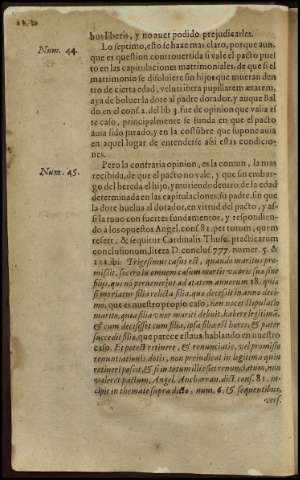 bus liberis, y no auer podido prejudicarles.
Num. 44.
Lo septimo, esto se haze mas claro, porque aun-
que es question controuertida si vale el pacto pues-
to en las capitulaciones matrimoniales, de que si el
matrimonio se disoluiere sin hijos que mueran den-
tro de cierta edad, veluti intra pupillarem ætatem,
aya de boluer la dote al padre dotador, y aunque Bal-
do en el cons. 2. del lib. 4. fue de opinion que valia este
caso, principalmente se funda en que el pacto
auia sido jurado, y en la costũbre que supone auia
en aquel lugar de entenderse assi estas condicio-
nes.
Num. 45.
Pero la contraria opinion, es la comun, la mas
recibida, de que el pacto no vale, y que sin embar-
go del hereda el hijo, y muriendo dentro de la edad
determinada en las capitulaciones, su padre, sin que
la dote buelua al dotador, en virtud del pacto, y as-
si la tuuo con fuertes fundamentos, y respondien-
do à los opuestos Angel. cons. 81. per totum, quem
refert, & sequitur Cardinalis Thusc. practicarum
conclusionum, litera D. conclus. 777. numer. 5. &
ibi: Trigesimus casus est, quando maritus pro-
misit, socero in omnem casum mortis vxoris sua sine
filijs, qui nõ peruenerint ad ætatem annorum 18. quia
si moriatur filia relicta filia, qua decessit in anno deci-
mo, que es nuestro proprio caso, non nocet stipulatio
marito, quia filia vnor mariti debuit habere legitimã,
& cum decessisset cum filia, ipsa filia est hæres, & pater
succedit filia, que parece estaua hablando en nuestro
caso. Et potest retinere, & renunciatio, vel promissio
renuntiationis dotis, non preiudicat in legitima quin
retineri possit, & si in totum esset renunciatum, non
valeret pactum, Angel. Ancharran. dict. cons. 81. in-
cipit in themate supra dicto, num. 6. & sequentibus,
vers.